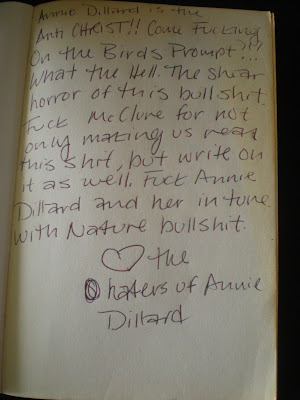 Annie Dillard is the
Anti CHRIST!! Come Fucking
On the Birds Prompt!!
What the Hell. The shear
horror of this bullshit.
Fuck McClure for not
only making us read
this shit, but write on
it as well. Fuck Annie
Dillard and her in tune
with Nature bullshit.
♡ the
haters of Annie
Dillard